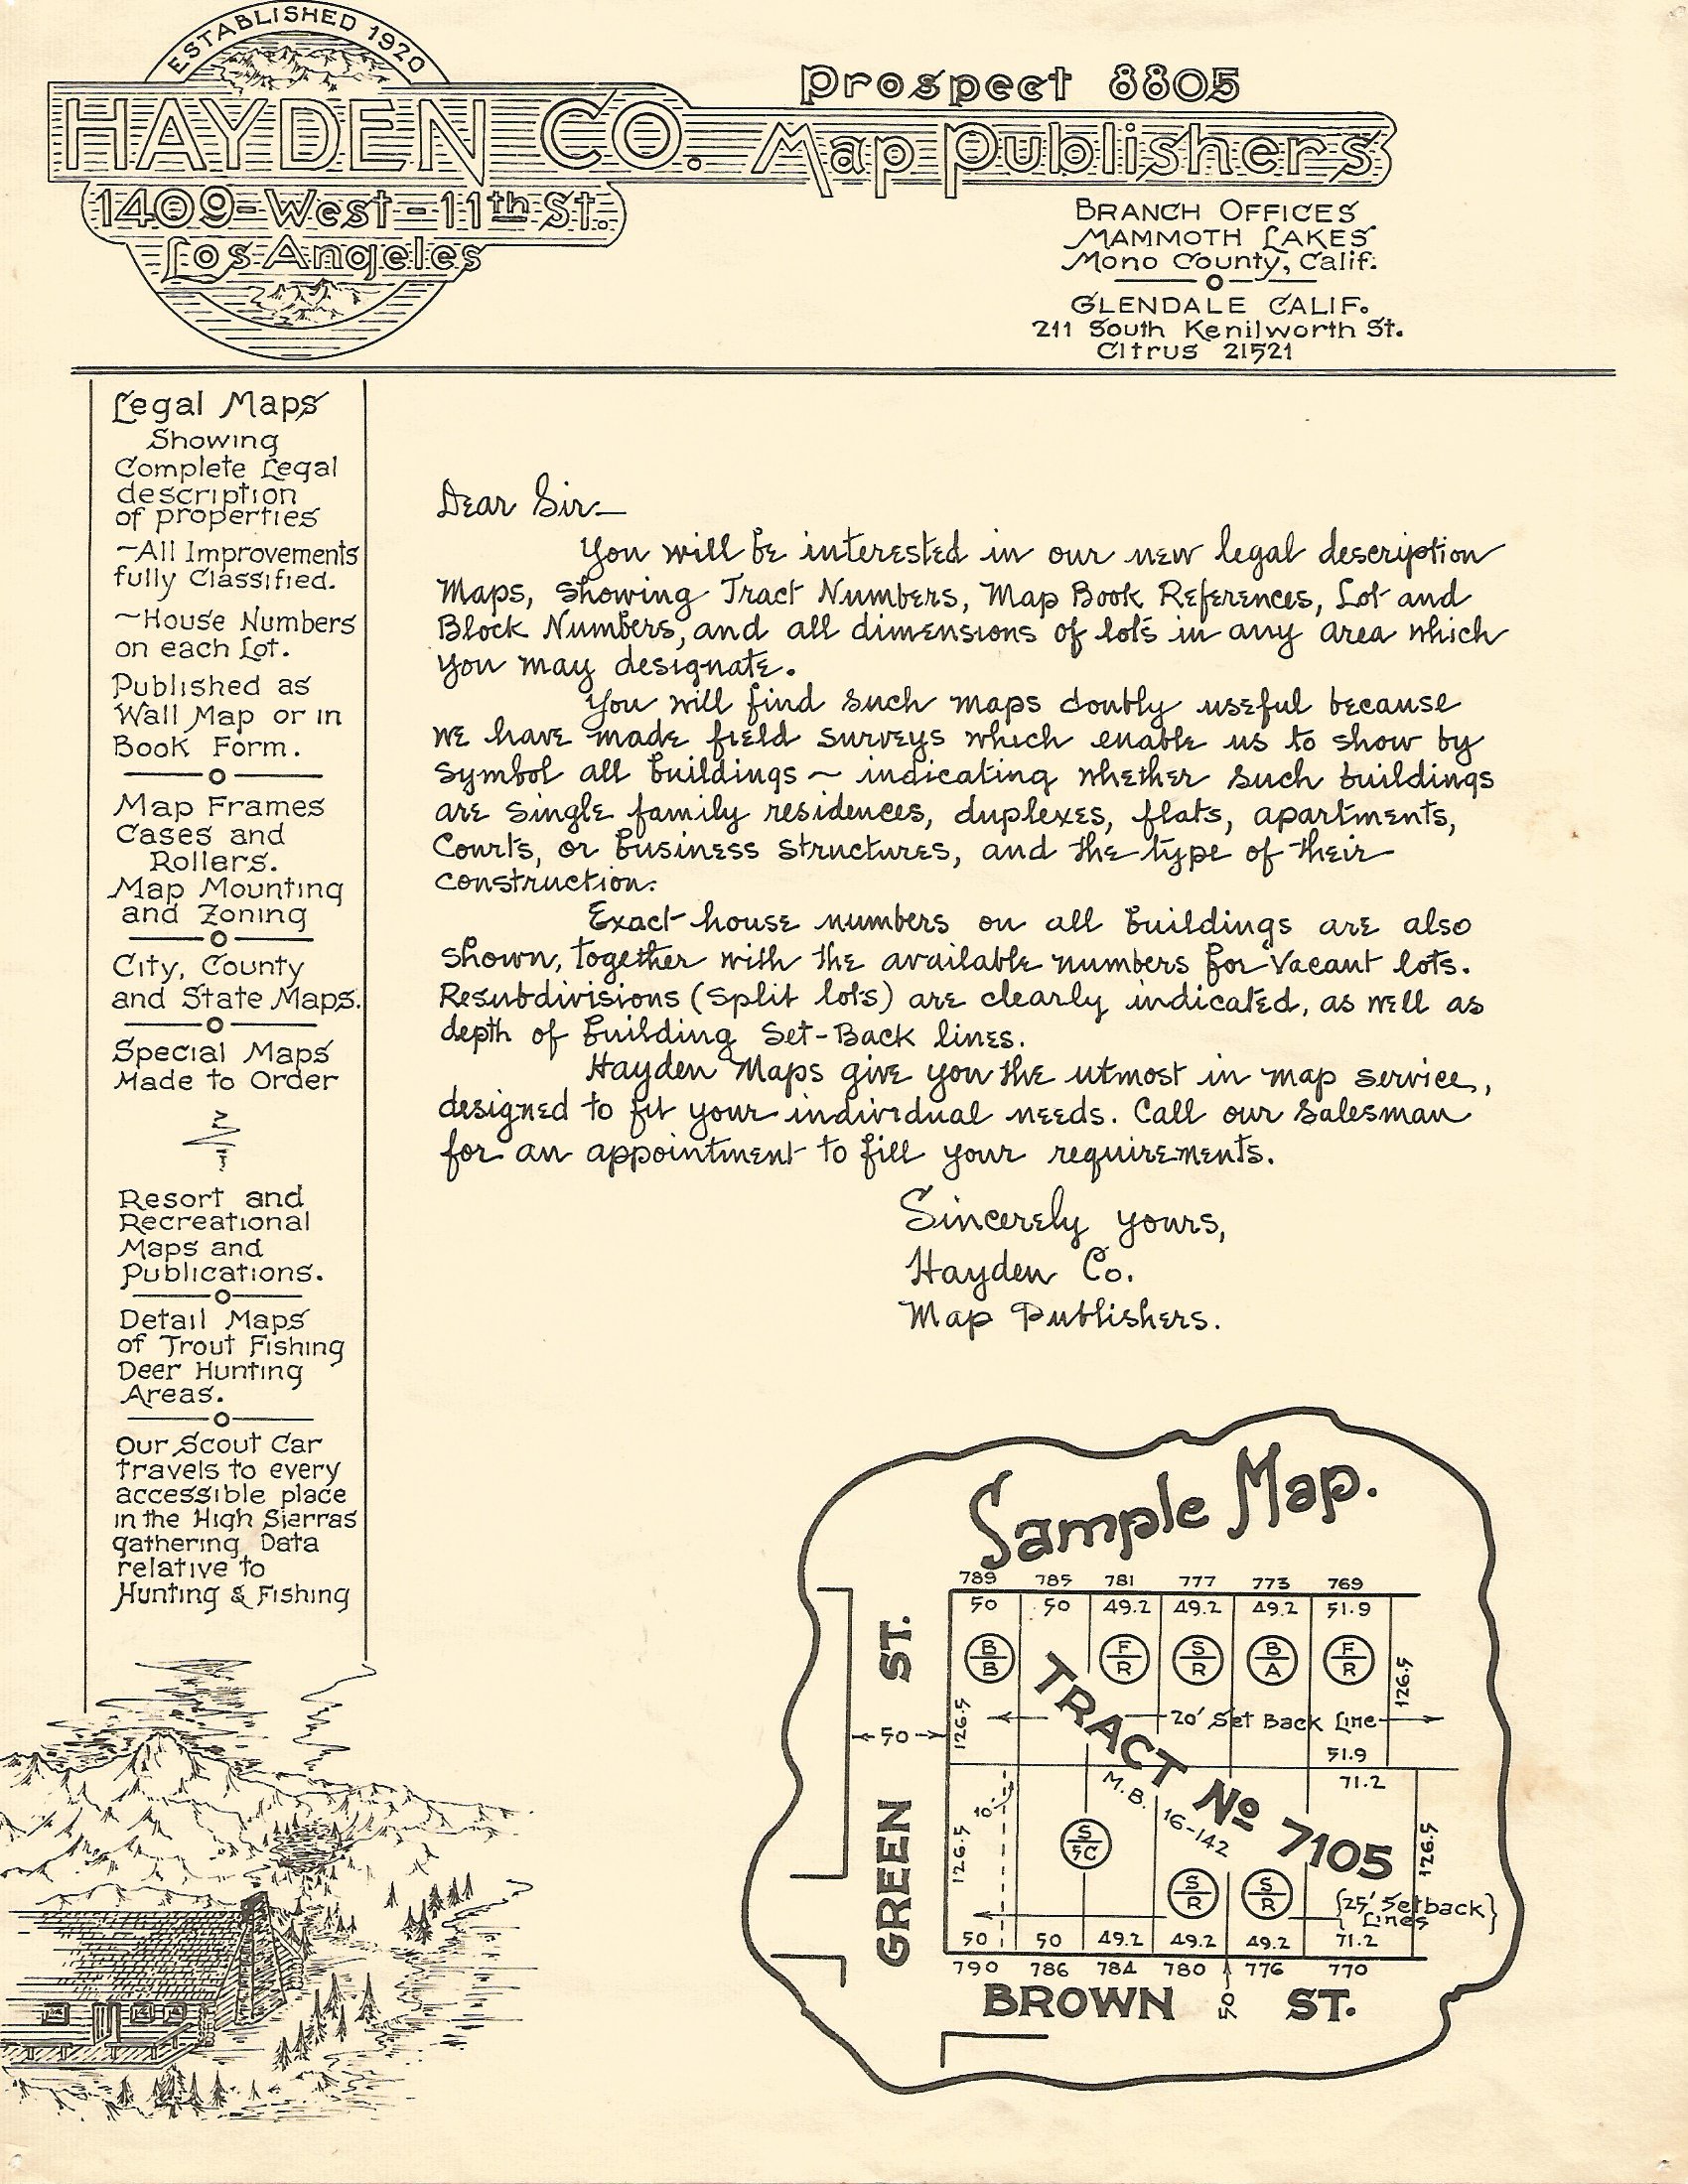 ESTABLISHED 1920
HAYDEN CO. Map Publishers
Prospect 8805
1409-West-11th St.
Los Angeles
BRANCH OFFICES
MAMMOTH LAKES
Mono County, Calif.
GLENDALE CALIF.
211 South Kenilworth St.
Citrus 21521
Legal Maps
Showing
Complete Legal
description
of properties
~All Improvements
fully Classified.
~House Numbers
on each Lot.
Published as
Wall Map or in
Book Form.
Map Frames
Cases and
Rollers.
Map Mounting
and Zoning
City, County
and State Maps.
Special Maps
Made to Order
Resort and
Recreational
Maps and
Publications.
Detail Maps
of Trout Fishing
Deer Hunting
Areas.
Our Scout Car
travels to every
accessible place
in the High Sierras
gathering Data
relative to
Hunting & Fishing
Dear Sir—
You will be interested in our new legal description
Maps, showing Tract Numbers, Map Book References, Lot and
Block Numbers, and all dimensions of lots in any area which
you may designate.
You will find such maps doubly useful because
we have made field surveys which enable us to show by
symbol all buildings ~ indicating whether such buildings
are single family residences, duplexes, flats, apartments,
Courts, or business structures, and the type of their
construction.
Exact house numbers on all buildings are also
shown, together with the available numbers for Vacant lots.
Resubdivisions (split lots) are clearly indicated, as well as
depth of building Set-Back lines.
Hayden Maps give you the utmost in map service,
designed to fit your individual needs. Call our salesman
for an appointment to fill your requirements.
Sincerely yours,
Hayden Co.
Map Publishers.
Sample Map.
789 785 781 777 773 769
50 50 49.2 49.2 49.2 51.9
B/B F/R S/R B/A F/R
126.5 126.5
20' Set Back Line
51.9
71.2
TRACT No 7105
M.B. 16-142
GREEN ST.
50
10'
126.5 126.5
S/5C
S/R S/R
{25' Setback}
Lines
50 50 49.2 49.2 49.2 71.2
790 786 784 780 776 770
BROWN ST.
50